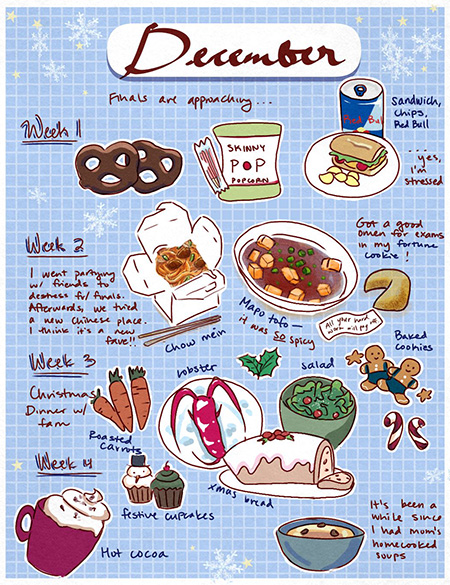 December
Finals are approaching...
Week 1
SKINNY
POP
POPCORN
Red Bull
Sandwich,
Chips,
Red Bull
... yes,
I'm
stressed
Week 2
I went partying
w/ friends to
destress fr/ finals.
Afterwards, we tried
a new Chinese place.
I think it's a new
fave!!
Chow mein
Mapo tofu —
it was so spicy
Got a good
omen for exams
in my fortune
cookie!
All your hard
work will pay off
Baked
cookies
Week 3
Christmas
Dinner w/
fam
Roasted
carrots
lobster
salad
xmas bread
Week 4
festive cupcakes
Hot cocoa
It's been a
while since
I had mom's
homecooked
soups